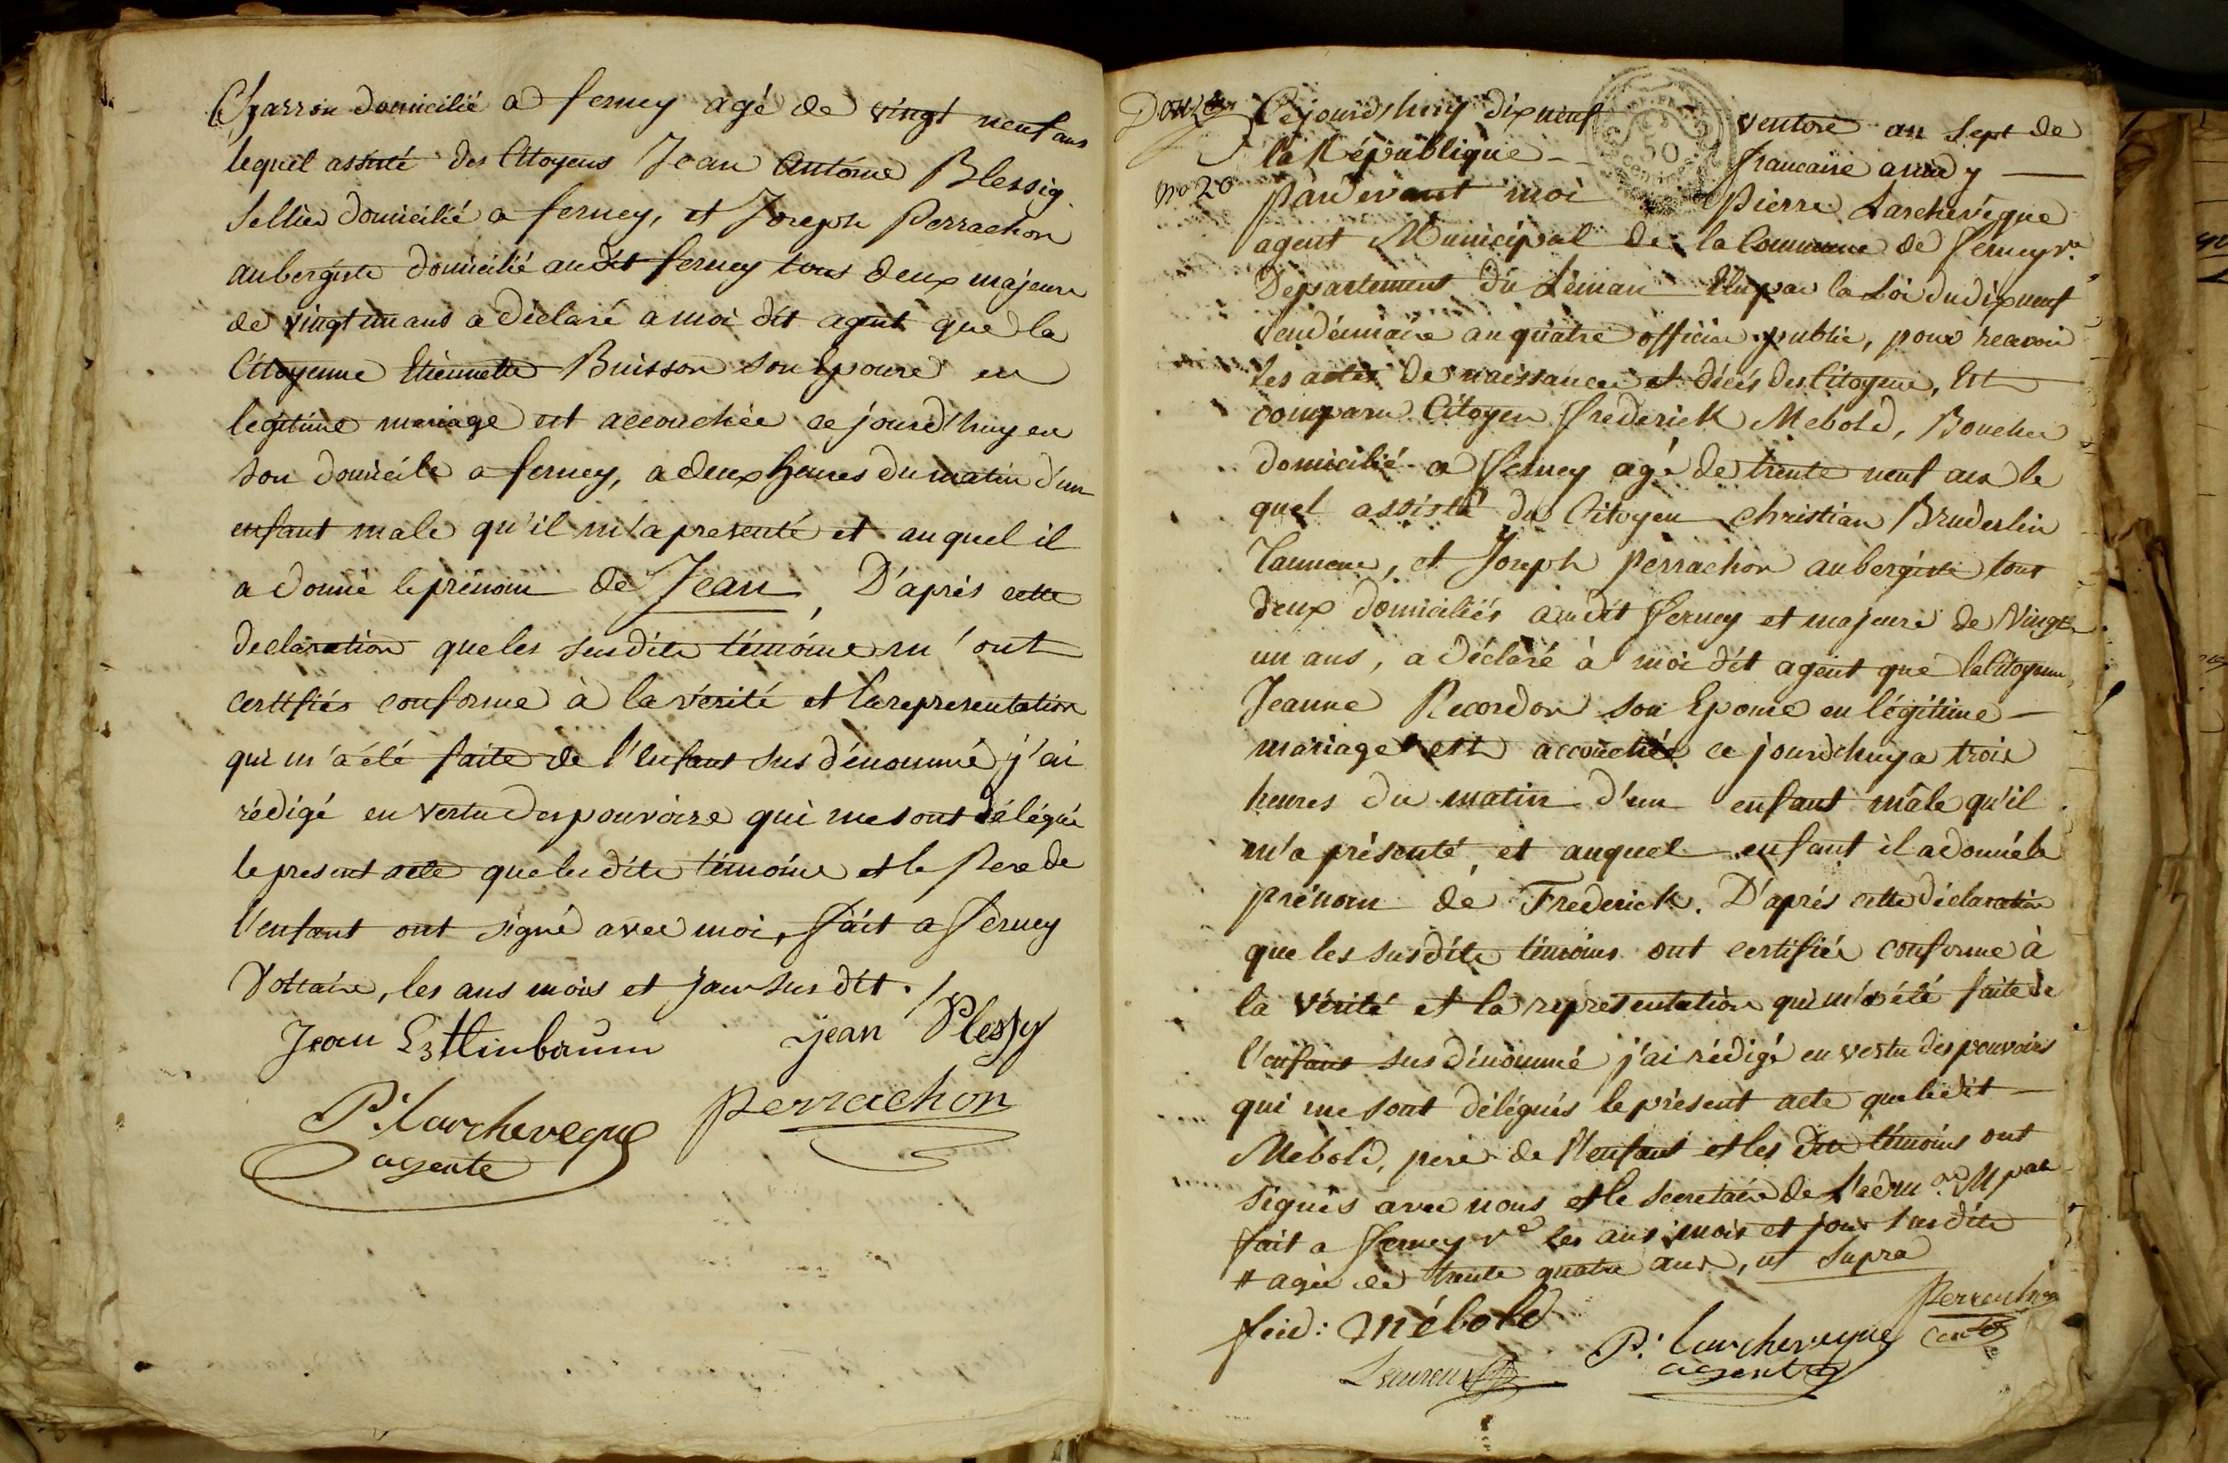 Charron domicilié a ferney agé de vingt neuf ans
lequel assisté des Citoyens Jean Antoine Blessig
Sellier domicilié a ferney, et Joseph Perrachon
aubergiste domicilié audit ferney tous deux majeurs
de vingt un ans a déclaré a moi dit agent que la
Citoyenne Etiennette Buisson son Epouse en
legitime mariage est accouchée ce jourd'huy en
son domicile a ferney, a deux heures du matin d'un
enfant male qu'il m'a presenté et auquel il
a donné le prénom de Jean, D'aprés cette
declaration que les susdits témoins m'ont
certifiés conforme à la vérité et la representation
qui m'a été faite de l'enfant sus dénommé j'ai
rédigé en vertu des pouvoirs qui me sont délégué
le present acte que les dits témoins et le Pere de
l'enfant ont signé avec moi, fait a ferney
Voltaire, les ans mois et jour sus dit.
Jean Estlinbaum jean Plessy
P. Larcheveque Perrachon
agente
Douze
no 20
50
Cejourd'huy dix neuf ventose an sept de
la République francaise a midy
Pardevant moi Pierre Larchevéque
agent Municipal de la Commune de ferney v.re
Département du Léman Elu par la Loi du dix neuf
vendémiaire an quatre officier public, pour recevoir
les actes de naissances et décés des Citoyens, Est
comparu Citoyen frederick Mebold, Boucher
domicilié a ferney agé de trente neuf ans le
quel assisté du Citoyen christian Bruderlin
Tanneur, et Joseph perrachon aubergiste tous
deux domiciliés audit ferney et majeurs de Vingt
un ans, a déclaré à moi dit agent que la Citoyenne
Jeanne Recordon son Epouse en légitime
mariage est accouchée ce jourd'huy a trois
heures du matin d'un enfant mâle qu'il
m'a présenté, et auquel enfant il a donné le
prénom de Frederick. D'aprés cette déclaration
que les susdits témoins ont certifiée conforme à
la Vérité et la representation qui m'a été faite de
l'enfant sus dénommé j'ai rédigé en vertu des pouvoirs
qui me sont délégués le présent acte que ledit
Mebold, pere de l'enfant et les dits témoins ont
signés avec nous et le secretaire de L'adm.on M.pale
fait a ferney v.e les ans mois et jour susdits
# agée de trente quatre ans, ut supra
frid: Mébold Perrachon
P. Larcheveque
agente